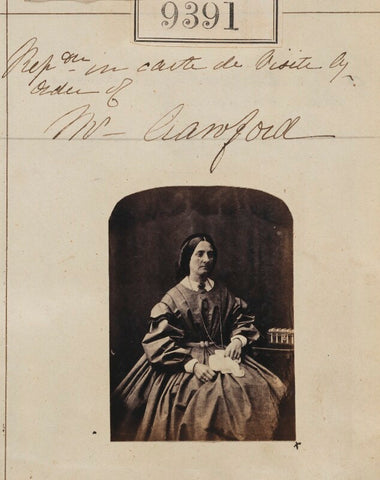 9391
Repdn in carte de Visite by
order of
Mr Crawford
x